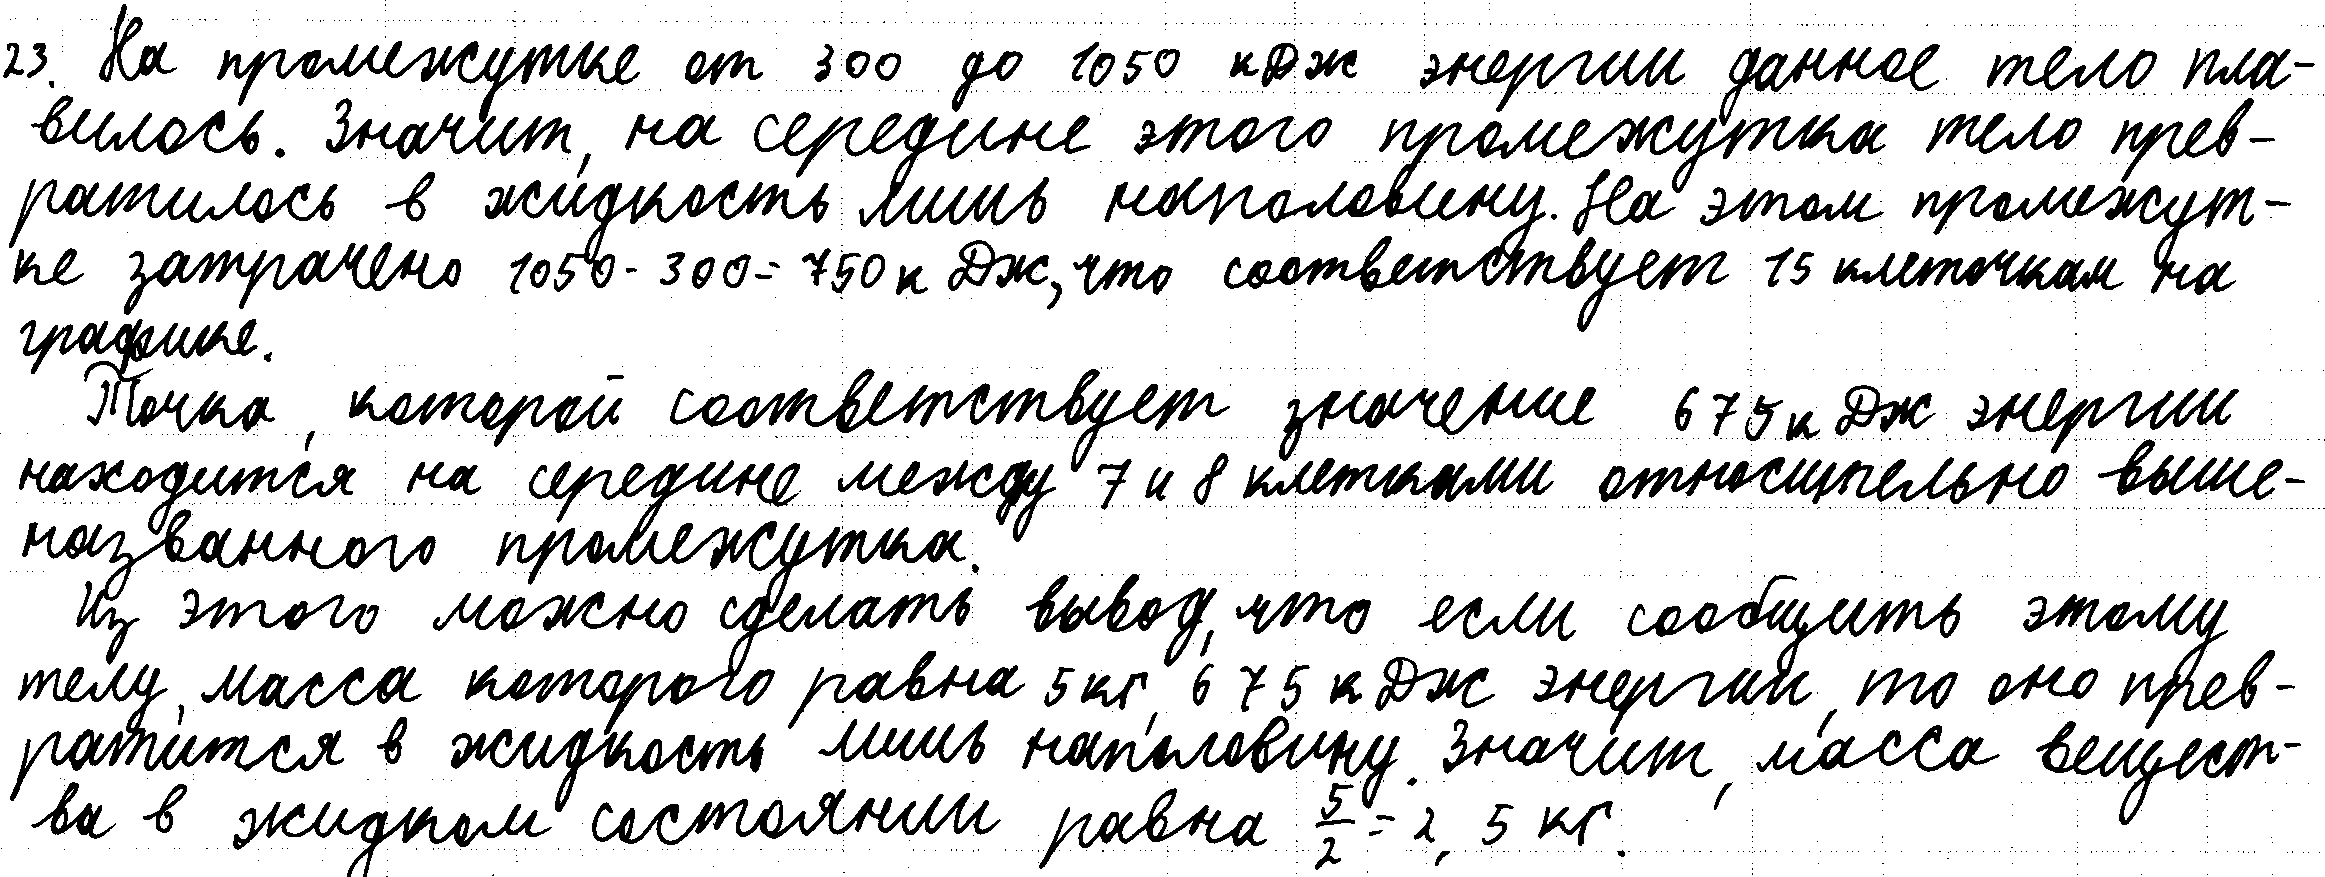 23. На промежутке от 300 до 1050 кДж энергии данное тело пла-
вилось. Значит, на середине этого промежутка тело прев-
ратилось в жидкость лишь наполовину. На этом промежут-
ке затрачено 1050 - 300 = 750 кДж, что соответствует 15 клеточкам на
графике.
Точка, которой соответствует значение 675 кДж энергии
находится на середине между 7 и 8 клетками относительно выше-
названного промежутка.
Из этого можно сделать вывод, что если сообщить этому
телу, масса которого равна 5 кг, 675 кДж энергии, то оно прев-
ратится в жидкость лишь наполовину. Значит, масса вещест-
ва в жидком состоянии равна 5/2 = 2,5 кг.